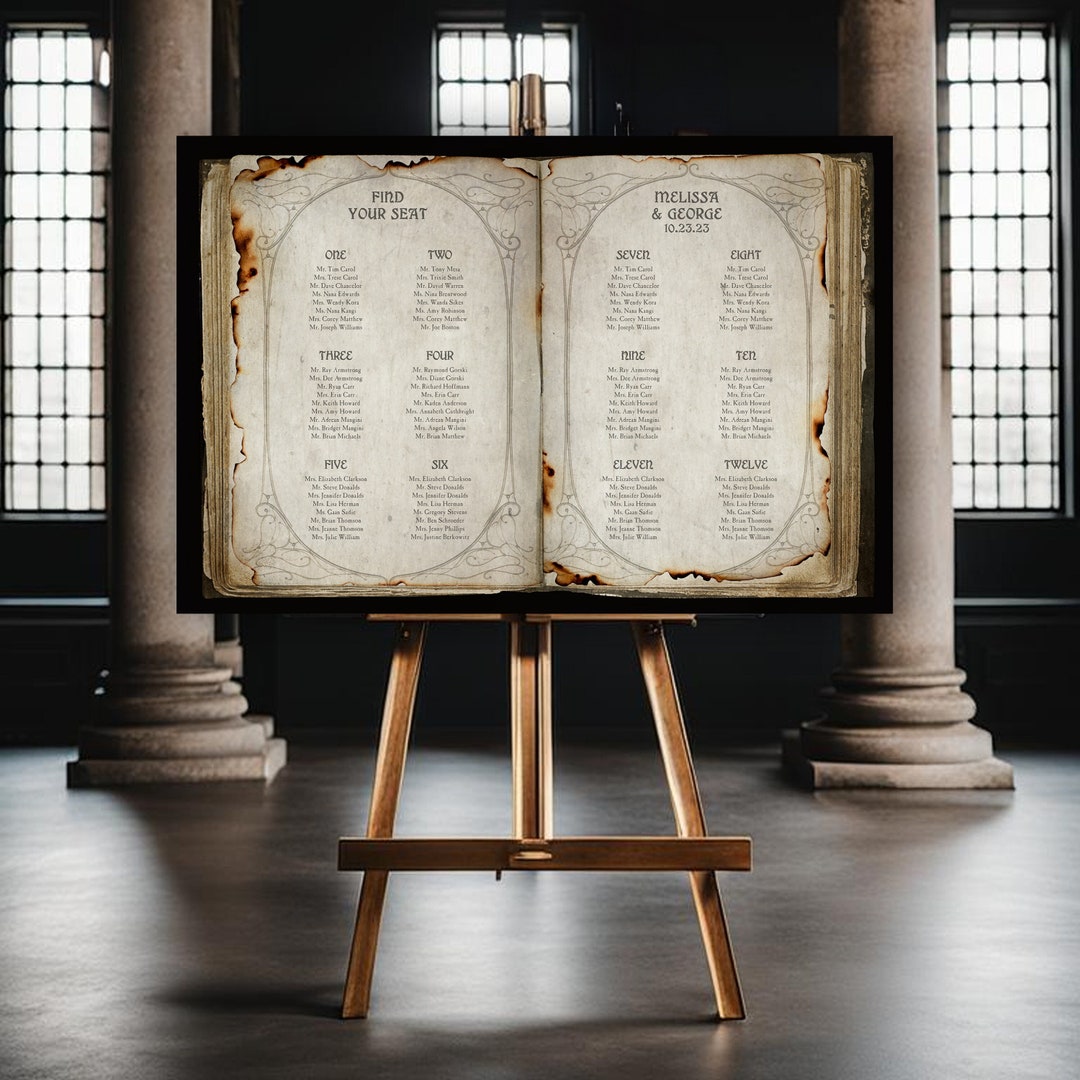 FIND
YOUR SEAT
ONE
Mr. Tim Carol
Mrs. Trese Carol
Mr. Dave Chancelor
Ms. Nana Edwards
Mrs. Wendy Kora
Ms. Nana Kangi
Mrs. Corey Matthew
Mr. Joseph Williams
TWO
Mr. Tony Mesa
Mrs. Trixie Smith
Mr. David Warren
Ms. Nina Brentwood
Mrs. Wanda Sikes
Ms. Amy Robinson
Mrs. Corey Matthew
Mr. Joe Boston
THREE
Mr. Ray Armstrong
Mrs. Dee Armstrong
Mr. Ryan Carr
Mrs. Erin Carr
Mr. Keith Howard
Mrs. Amy Howard
Mr. Adrean Mangini
Mrs. Bridget Mangini
Mr. Brian Michaels
FOUR
Mr. Raymond Gorski
Mrs. Diane Gorski
Mr. Richard Hoffmann
Mrs. Erin Carr
Mr. Kaden Anderson
Mrs. Annabeth Cuthbright
Mr. Adrean Mangini
Mrs. Angela Wilson
Mr. Brian Matthew
FIVE
Mrs. Elizabeth Clarkson
Mr. Steve Donalds
Mrs. Jennifer Donalds
Mrs. Lisa Herman
Ms. Gaan Sadie
Mr. Brian Thomson
Mrs. Jeanne Thomson
Mrs. Julie William
SIX
Mrs. Elizabeth Clarkson
Mr. Steve Donalds
Mrs. Jennifer Donalds
Mrs. Lisa Herman
Ms. Gregory Stevens
Mr. Ben Schroeder
Mrs. Jenny Phillips
Mrs. Justine Berkowitz
MELISSA
& GEORGE
10.23.23
SEVEN
Mr. Tim Carol
Mrs. Trese Carol
Mr. Dave Chancelor
Ms. Nana Edwards
Mrs. Wendy Kora
Ms. Nana Kangi
Mrs. Corey Matthew
Mr. Joseph Williams
EIGHT
Mr. Tim Carol
Mrs. Trese Carol
Mr. Dave Chancelor
Ms. Nana Edwards
Mrs. Wendy Kora
Ms. Nana Kangi
Mrs. Corey Matthew
Mr. Joseph Williams
NINE
Mr. Ray Armstrong
Mrs. Dee Armstrong
Mr. Ryan Carr
Mrs. Erin Carr
Mr. Keith Howard
Mrs. Amy Howard
Mr. Adrean Mangini
Mrs. Bridget Mangini
Mr. Brian Michaels
TEN
Mr. Ray Armstrong
Mrs. Dee Armstrong
Mr. Ryan Carr
Mrs. Erin Carr
Mr. Keith Howard
Mrs. Amy Howard
Mr. Adrean Mangini
Mrs. Bridget Mangini
Mr. Brian Michaels
ELEVEN
Mrs. Elizabeth Clarkson
Mr. Steve Donalds
Mrs. Jennifer Donalds
Mrs. Lisa Herman
Ms. Gaan Sadie
Mr. Brian Thomson
Mrs. Jeanne Thomson
Mrs. Julie William
TWELVE
Mrs. Elizabeth Clarkson
Mr. Steve Donalds
Mrs. Jennifer Donalds
Mrs. Lisa Herman
Ms. Gaan Sadie
Mr. Brian Thomson
Mrs. Jeanne Thomson
Mrs. Julie William